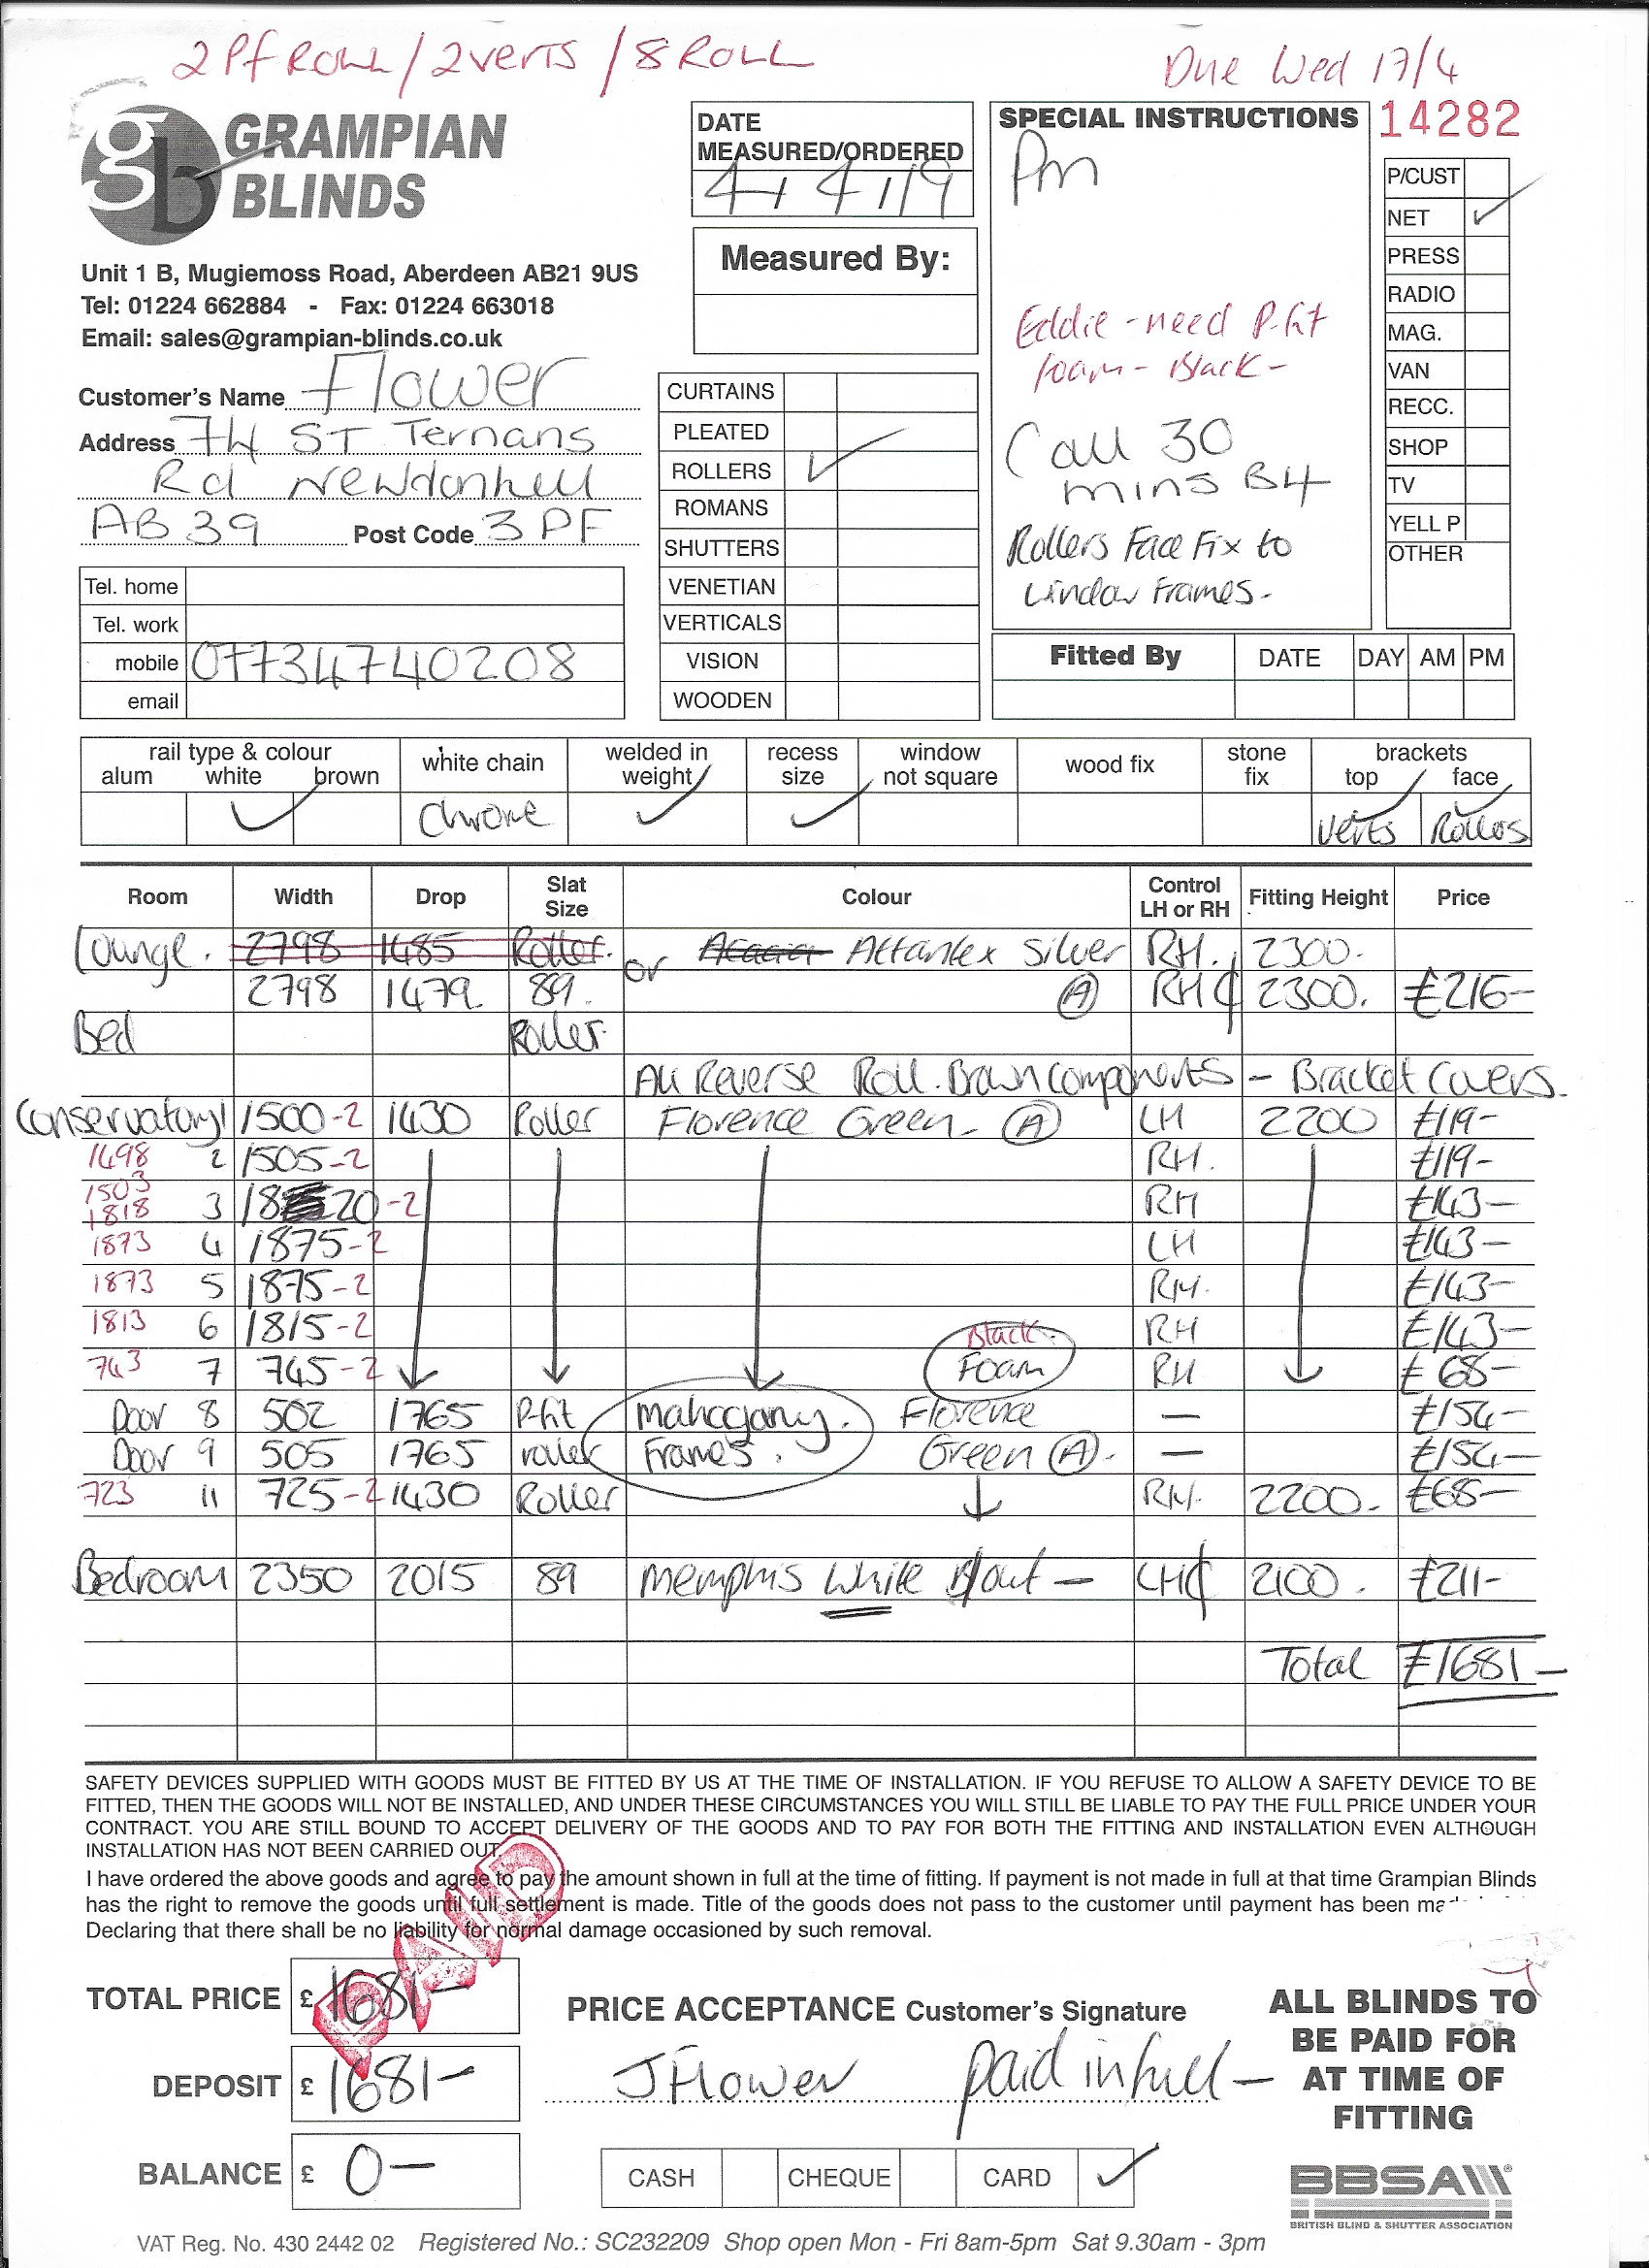 2 Pf ROLL / 2 verts / 8 ROLL
Due Wed 17/4
gb GRAMPIAN
BLINDS
Unit 1 B, Mugiemoss Road, Aberdeen AB21 9US
Tel: 01224 662884 - Fax: 01224 663018
Email: sales@grampian-blinds.co.uk
Customer's Name Flower
Address 74 ST Ternans
Rd Newtonhill
AB39 Post Code 3PF
Tel. home
Tel. work
mobile 07734740208
email
DATE
MEASURED/ORDERED
4/4/19
Measured By:
CURTAINS
PLEATED
ROLLERS ✓
ROMANS
SHUTTERS
VENETIAN
VERTICALS
VISION
WOODEN
SPECIAL INSTRUCTIONS
Pm
Eddie - need P-fit
foam - Black -
Call 30
mins B4
Rollers Face Fix to
Window Frames.
14282
P/CUST
NET ✓
PRESS
RADIO
MAG.
VAN
RECC.
SHOP
TV
YELL P
OTHER
Fitted By DATE DAY AM PM
rail type & colour white chain welded in recess window wood fix stone brackets
alum white brown weight size not square fix top face
✓ Chrome ✓ ✓ verts Rollos
Room Width Drop Slat Size Colour Control LH or RH Fitting Height Price
Lounge. 2798 1485 Roller. or Acacia Atlantex Silver RH. 2300.
2798 1479 89. (A) RH₵ 2300. £216-
Bed Roller.
All Reverse Roll. Brown components - Bracket Covers.
Conservatory 1 1500-2 1430 Roller Florence Green - (A) LH 2200 £119-
1498 2 1505-2 RH. £119-
1503
1818 3 1820-2 RH £143-
1873 4 1875-2 LH £143-
1873 5 1875-2 RH. £143-
1813 6 1815-2 Black RH £143-
743 7 745-2 Foam RH £68-
Door 8 502 1765 P-fit mahogany. Florence - £154-
Door 9 505 1765 roller Frames. Green (A). - £154-
723 11 725-2 1430 Roller RH. 2200- £68-
Bedroom 2350 2015 89 Memphis White B/out - LH₵ 2100. £211-
Total £1681-
SAFETY DEVICES SUPPLIED WITH GOODS MUST BE FITTED BY US AT THE TIME OF INSTALLATION. IF YOU REFUSE TO ALLOW A SAFETY DEVICE TO BE
FITTED, THEN THE GOODS WILL NOT BE INSTALLED, AND UNDER THESE CIRCUMSTANCES YOU WILL STILL BE LIABLE TO PAY THE FULL PRICE UNDER YOUR
CONTRACT. YOU ARE STILL BOUND TO ACCEPT DELIVERY OF THE GOODS AND TO PAY FOR BOTH THE FITTING AND INSTALLATION EVEN ALTHOUGH
INSTALLATION HAS NOT BEEN CARRIED OUT.
I have ordered the above goods and agree to pay the amount shown in full at the time of fitting. If payment is not made in full at that time Grampian Blinds
has the right to remove the goods until full settlement is made. Title of the goods does not pass to the customer until payment has been
Declaring that there shall be no liability for normal damage occasioned by such removal.
PAID
TOTAL PRICE £ 1681-
DEPOSIT £ 1681-
BALANCE £ 0-
PRICE ACCEPTANCE Customer's Signature
J Flower paid in full -
CASH CHEQUE CARD ✓
ALL BLINDS TO
BE PAID FOR
AT TIME OF
FITTING
BBSA
BRITISH BLIND & SHUTTER ASSOCIATION
VAT Reg. No. 430 2442 02 Registered No.: SC232209 Shop open Mon - Fri 8am-5pm Sat 9.30am - 3pm